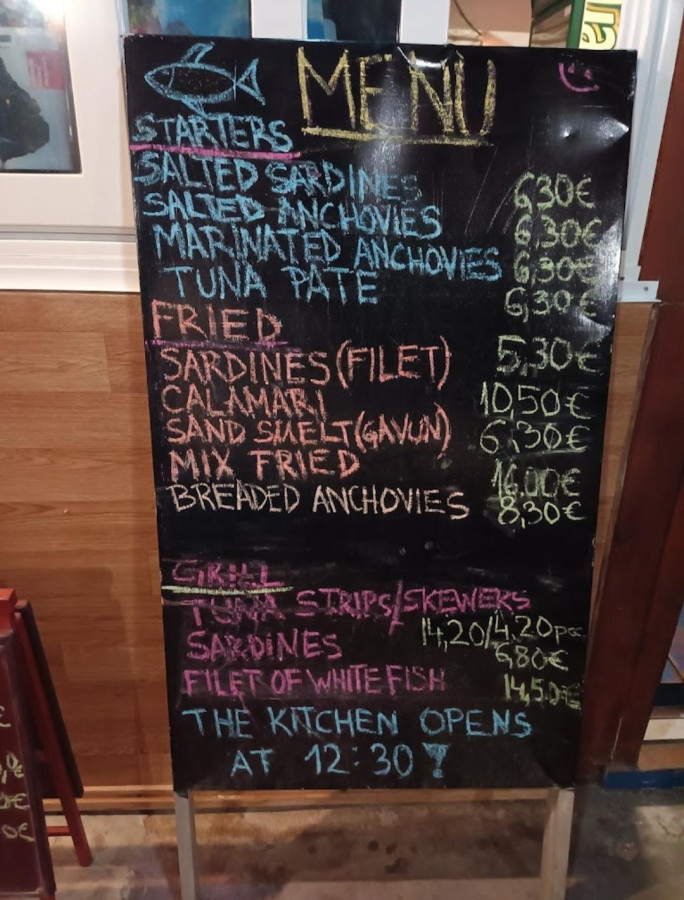 MENU
STARTERS
SALTED SARDINES 6,30€
SALTED ANCHOVIES 6,30€
MARINATED ANCHOVIES 6,30€
TUNA PATE 6,30€
FRIED
SARDINES (FILET) 5,30€
CALAMARI 10,50€
SAND SMELT (GAVUN) 6,30€
MIX FRIED 16.00€
BREADED ANCHOVIES 8,30€
GRILL
TUNA STRIPS/SKEWERS
14,20/4.20
SARDINES 6,80€
FILET OF WHITE FISH 14,50€
THE KITCHEN OPENS
AT 12:30!